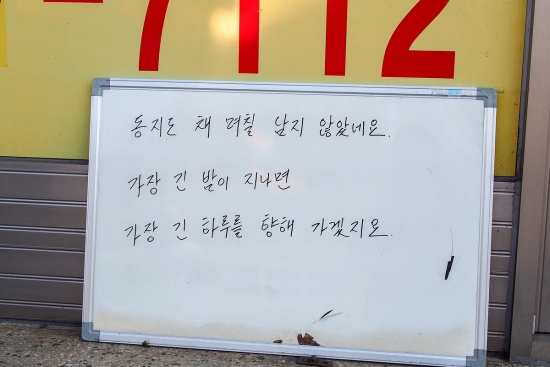 -7112
동지도 채 며칠 남지 않았네요.
가장 긴 밤이 지나면
가장 긴 하루를 향해 가겠지요.